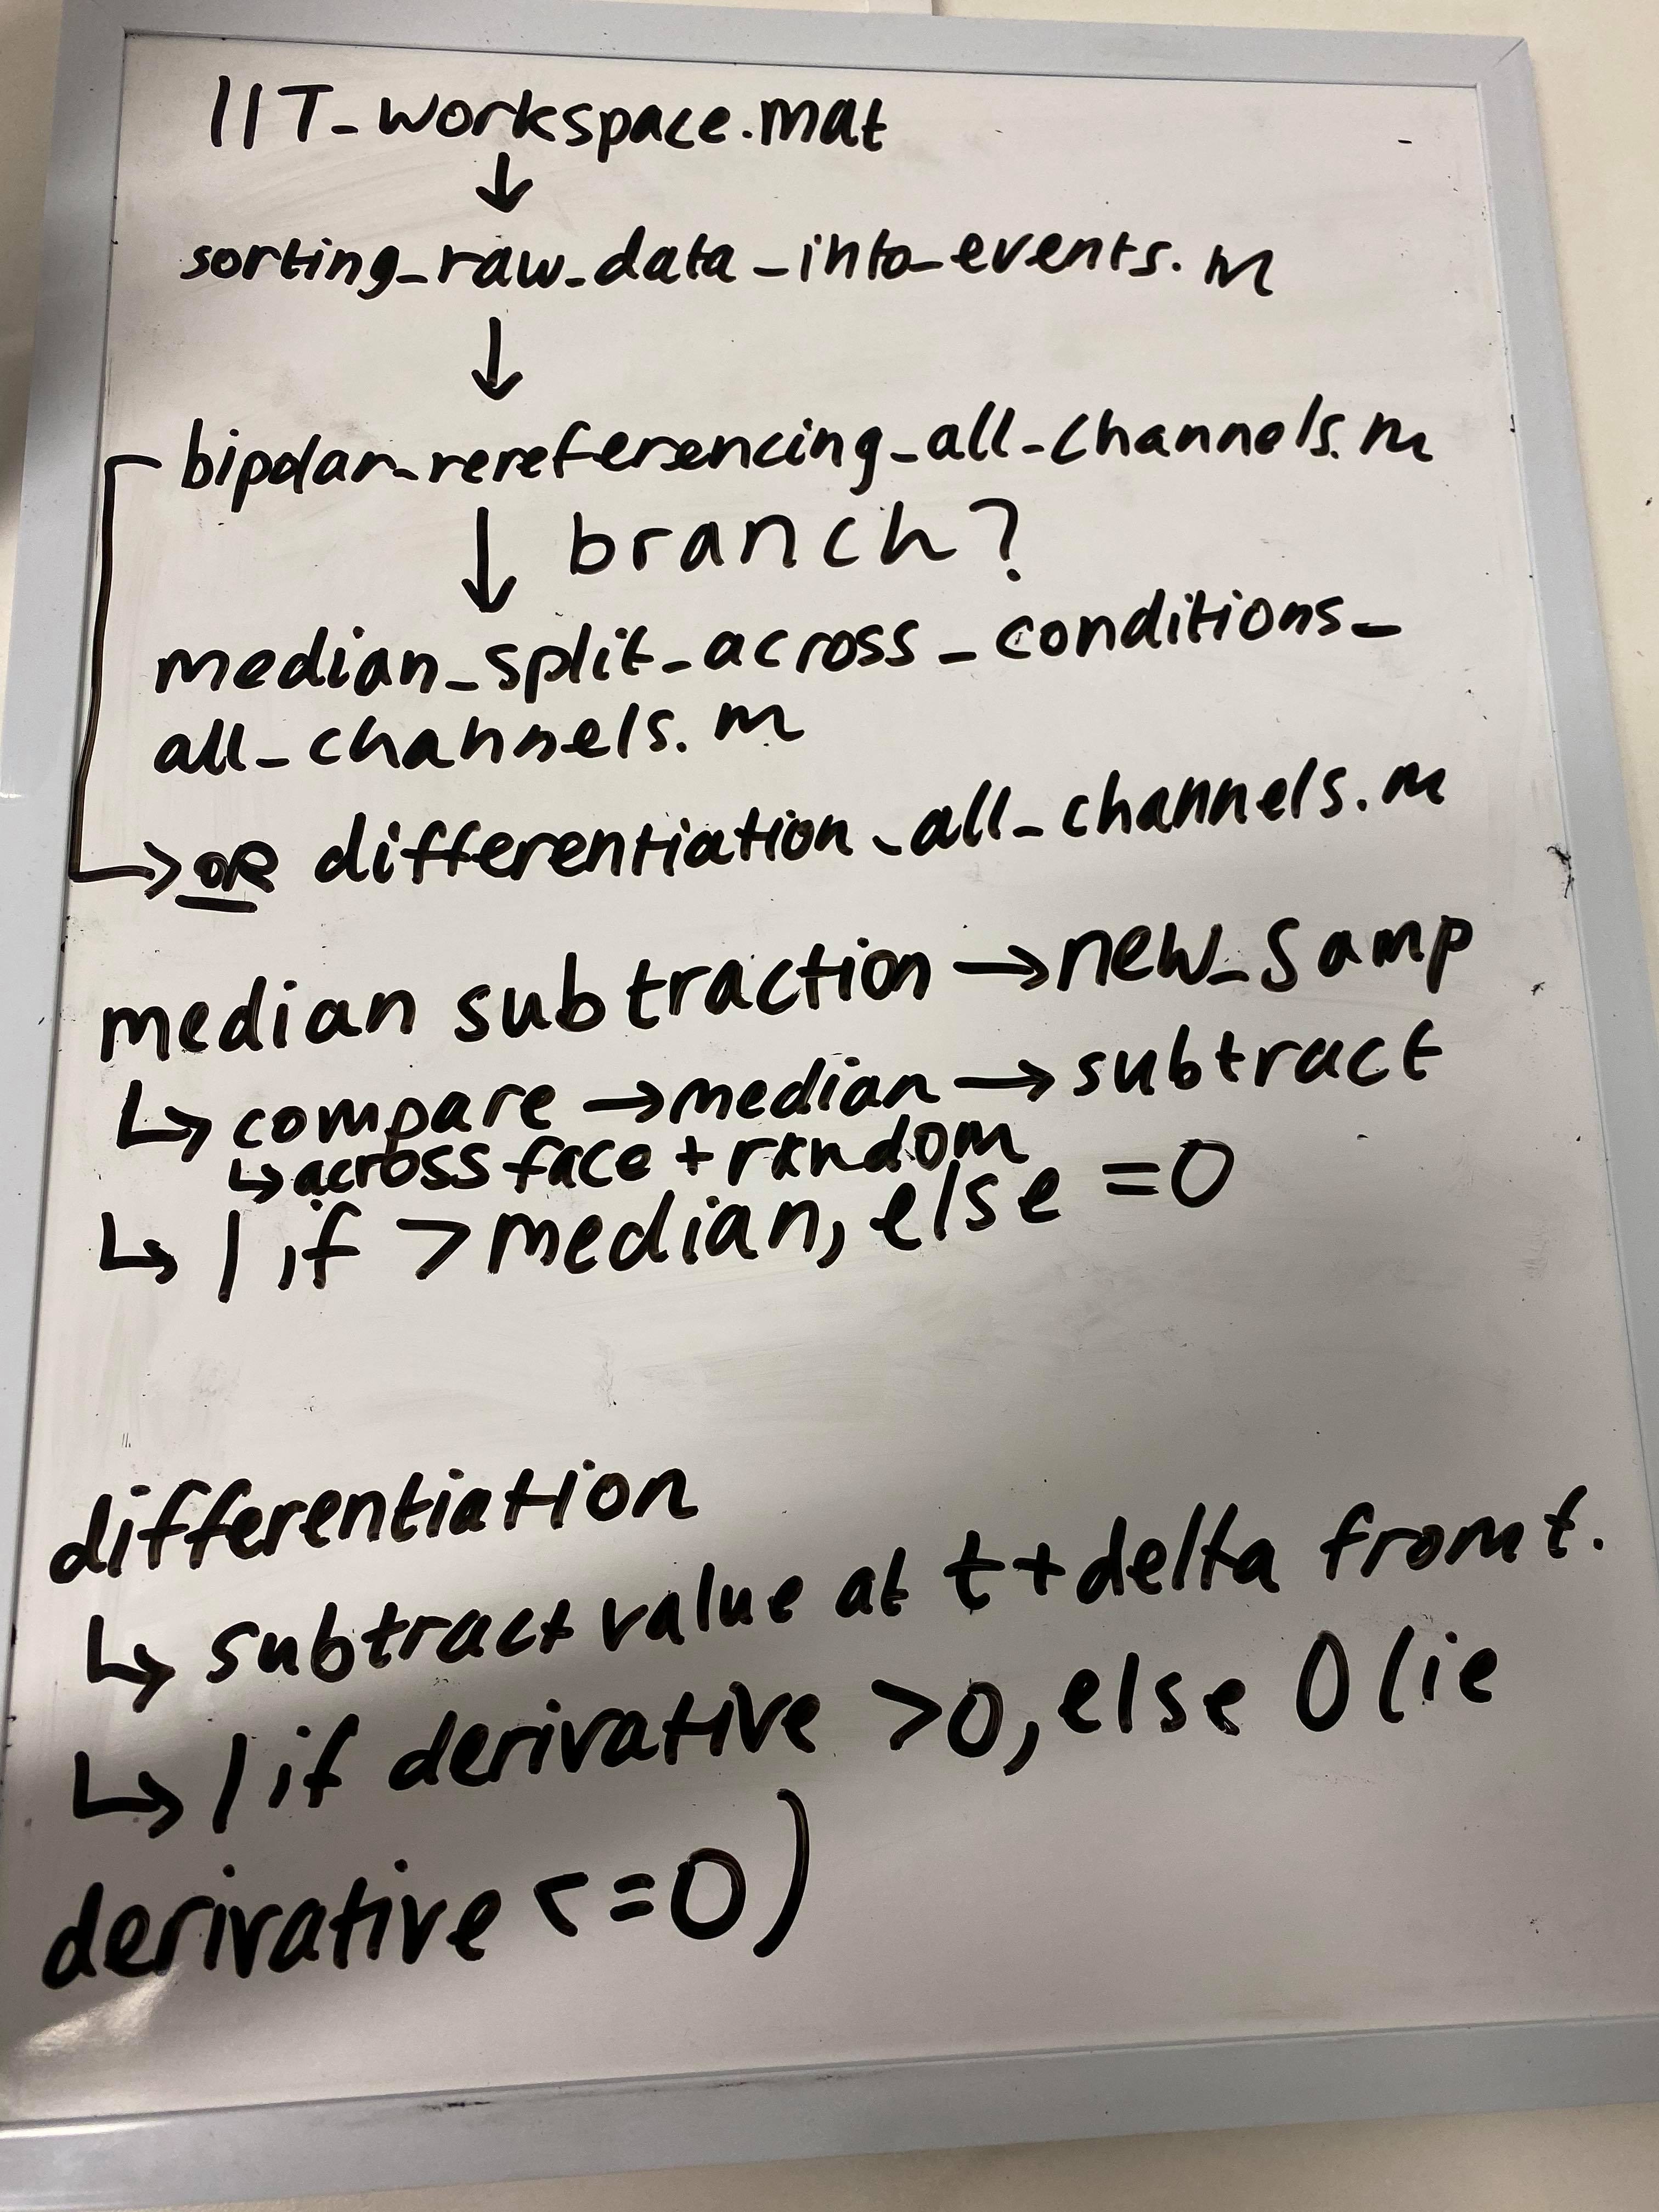 IIT_workspace.mat
↓
sorting_raw_data_into_events.m
↓
bipolar_rereferencing_all_channels.m
↓ branch?
median_split_across_conditions_
all_channels.m
→ OR differentiation_all_channels.m
median subtraction → new_samp
↳ compare → median → subtract
↳ across face + random
↳ 1 if > median, else = 0
differentiation
↳ subtract value at t + delta from t.
↳ 1 if derivative > 0, else 0 (ie
derivative <= 0)